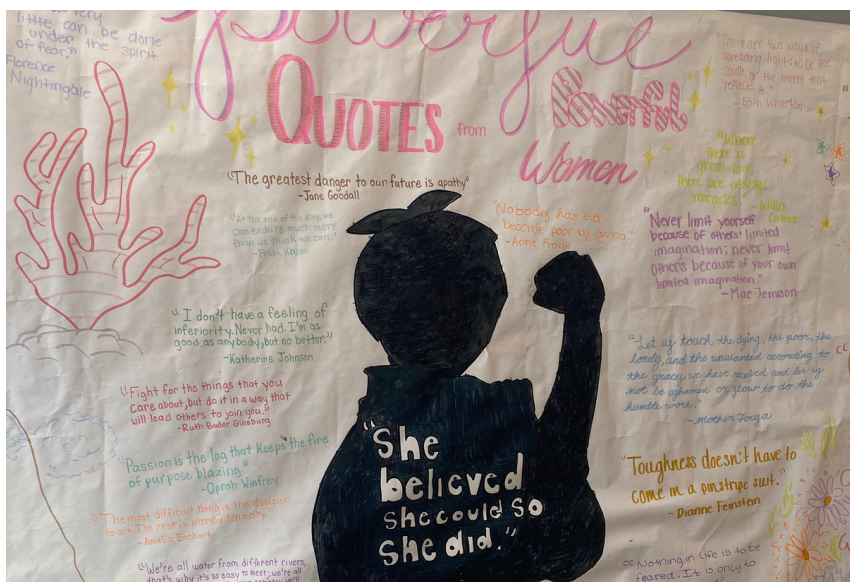 very
little can be done
under the spirit
of fear."
Florence
Nightingale
Powerful
QUOTES from Powerful
Women
"There are two ways of
spreading light: to be the
candle, or the mirror that
reflects it."
- Edith Wharton
"Where
there is
great love,
there are always
miracles." - Willa
Cather
"The greatest danger to our future is apathy"
-Jane Goodall
"At the end of the day, we
can endure much more
than we think we can."
-Frida Kahlo
"Nobody has ever
become poor by giving."
-Anne Frank
"Never limit yourself
because of others' limited
imagination; never limit
others because of your own
limited imagination."
-Mae Jemison
"I don't have a feeling of
inferiority. Never had. I'm as
good as anybody, but no better."
-Katherine Johnson
"Let us touch the dying, the poor, the
lonely, and the unwanted according to
the graces we have received and let us
not be ashamed or slow to do the
humble work."
-Mother Teresa
"Fight for the things that you
care about, but do it in a way that
will lead others to join you."
-Ruth Bader Ginsburg
"Passion is the log that keeps the fire
of purpose blazing."
-Oprah Winfrey
"The most difficult thing is the decision
to act. The rest is merely tenacity."
-Amelia Earhart
"She
believed
she could so
she did."
"Toughness doesn't have to
come in a pinstripe suit."
- Dianne Feinstein
"We're all water from different rivers,
that's why it's so easy to meet; we're all
"Nothing in life is to be
feared. It is only to